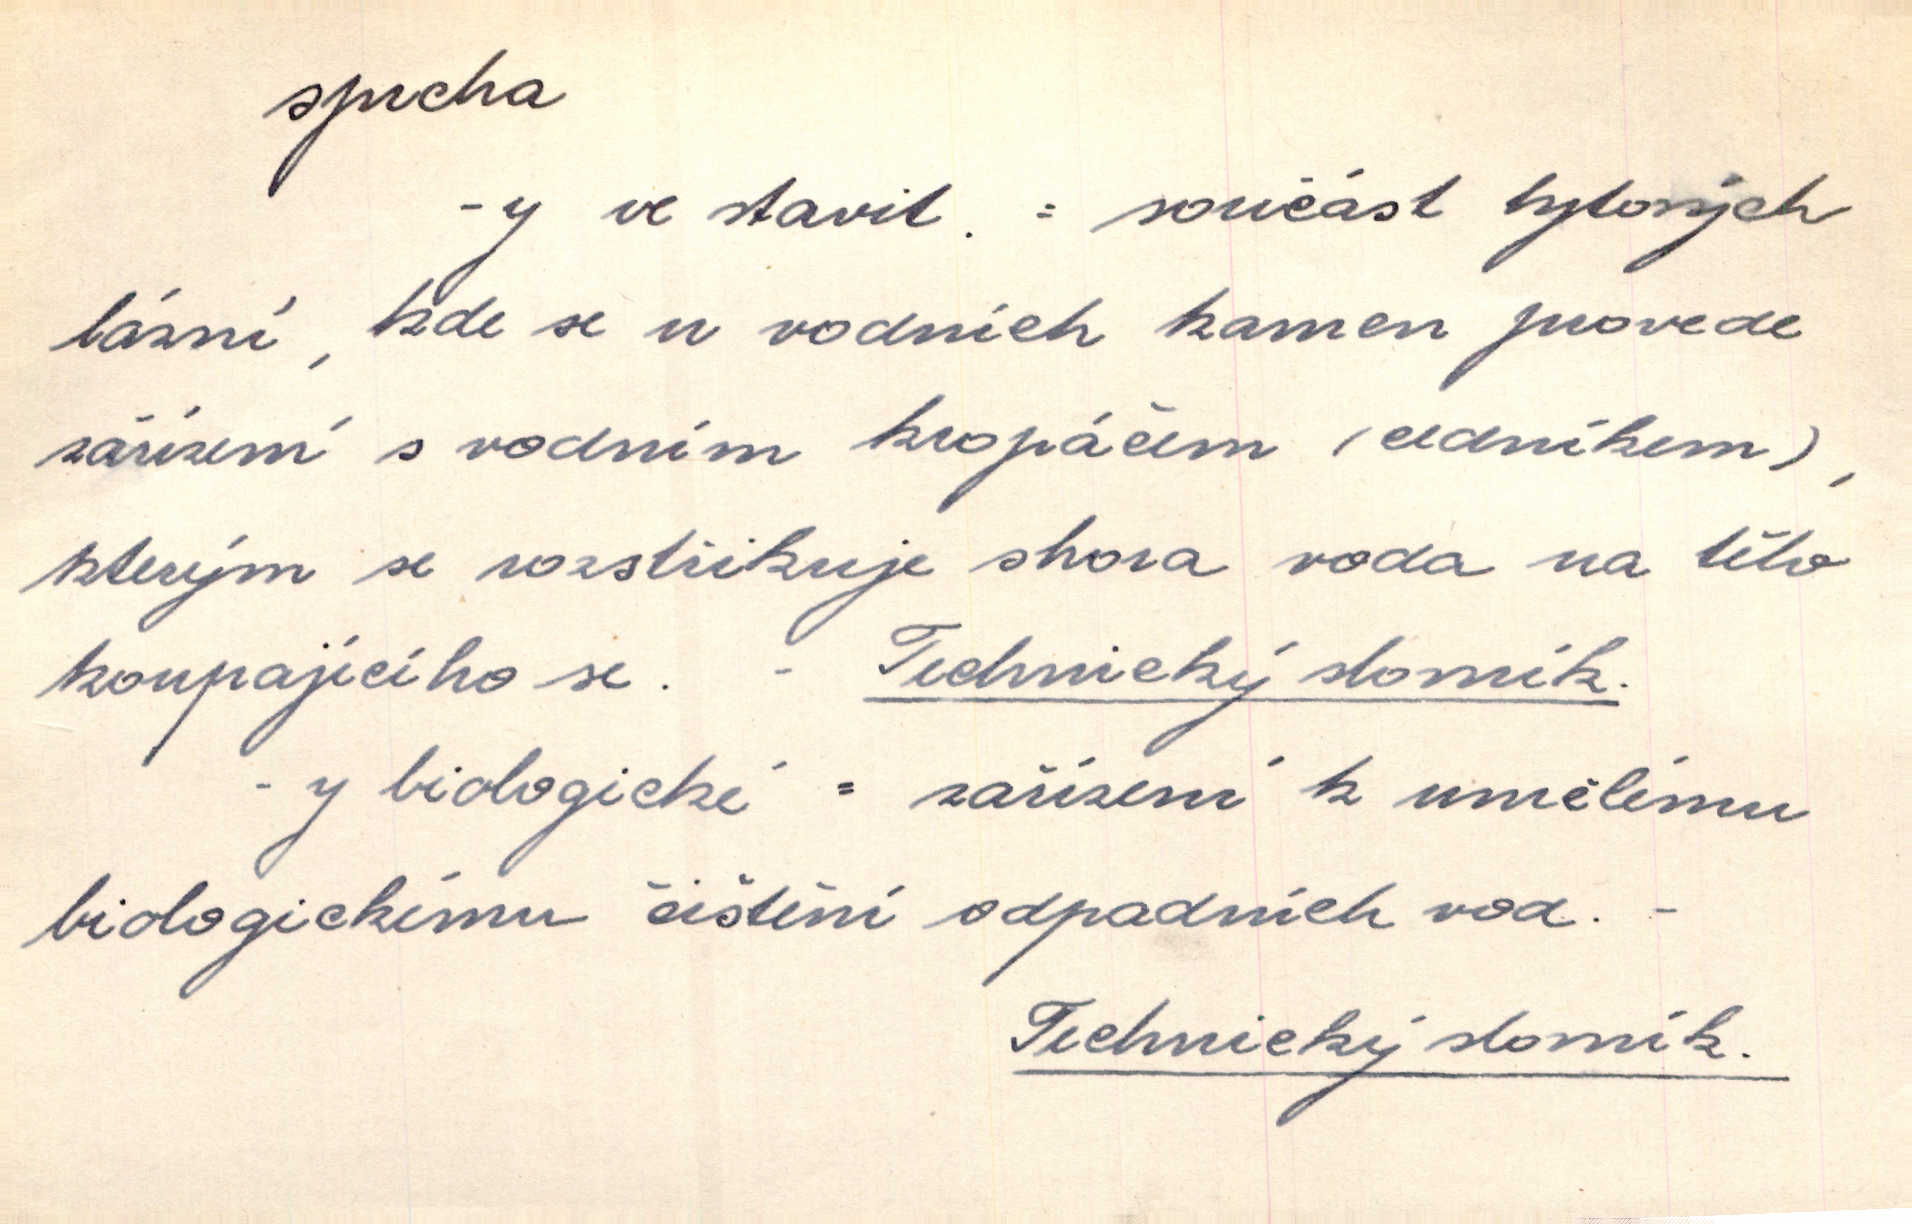 sprcha
-y ve stavit. = součást bytových
lázní, kde se u vodních kamen provede
zařízení s vodním kropáčem (cedníkem),
kterým se rozstřikuje shora voda na tělo
koupajícího se. - Technický slovník.
-y biologické = zařízení k umělému
biologickému čištění odpadních vod. -
Technický slovník.